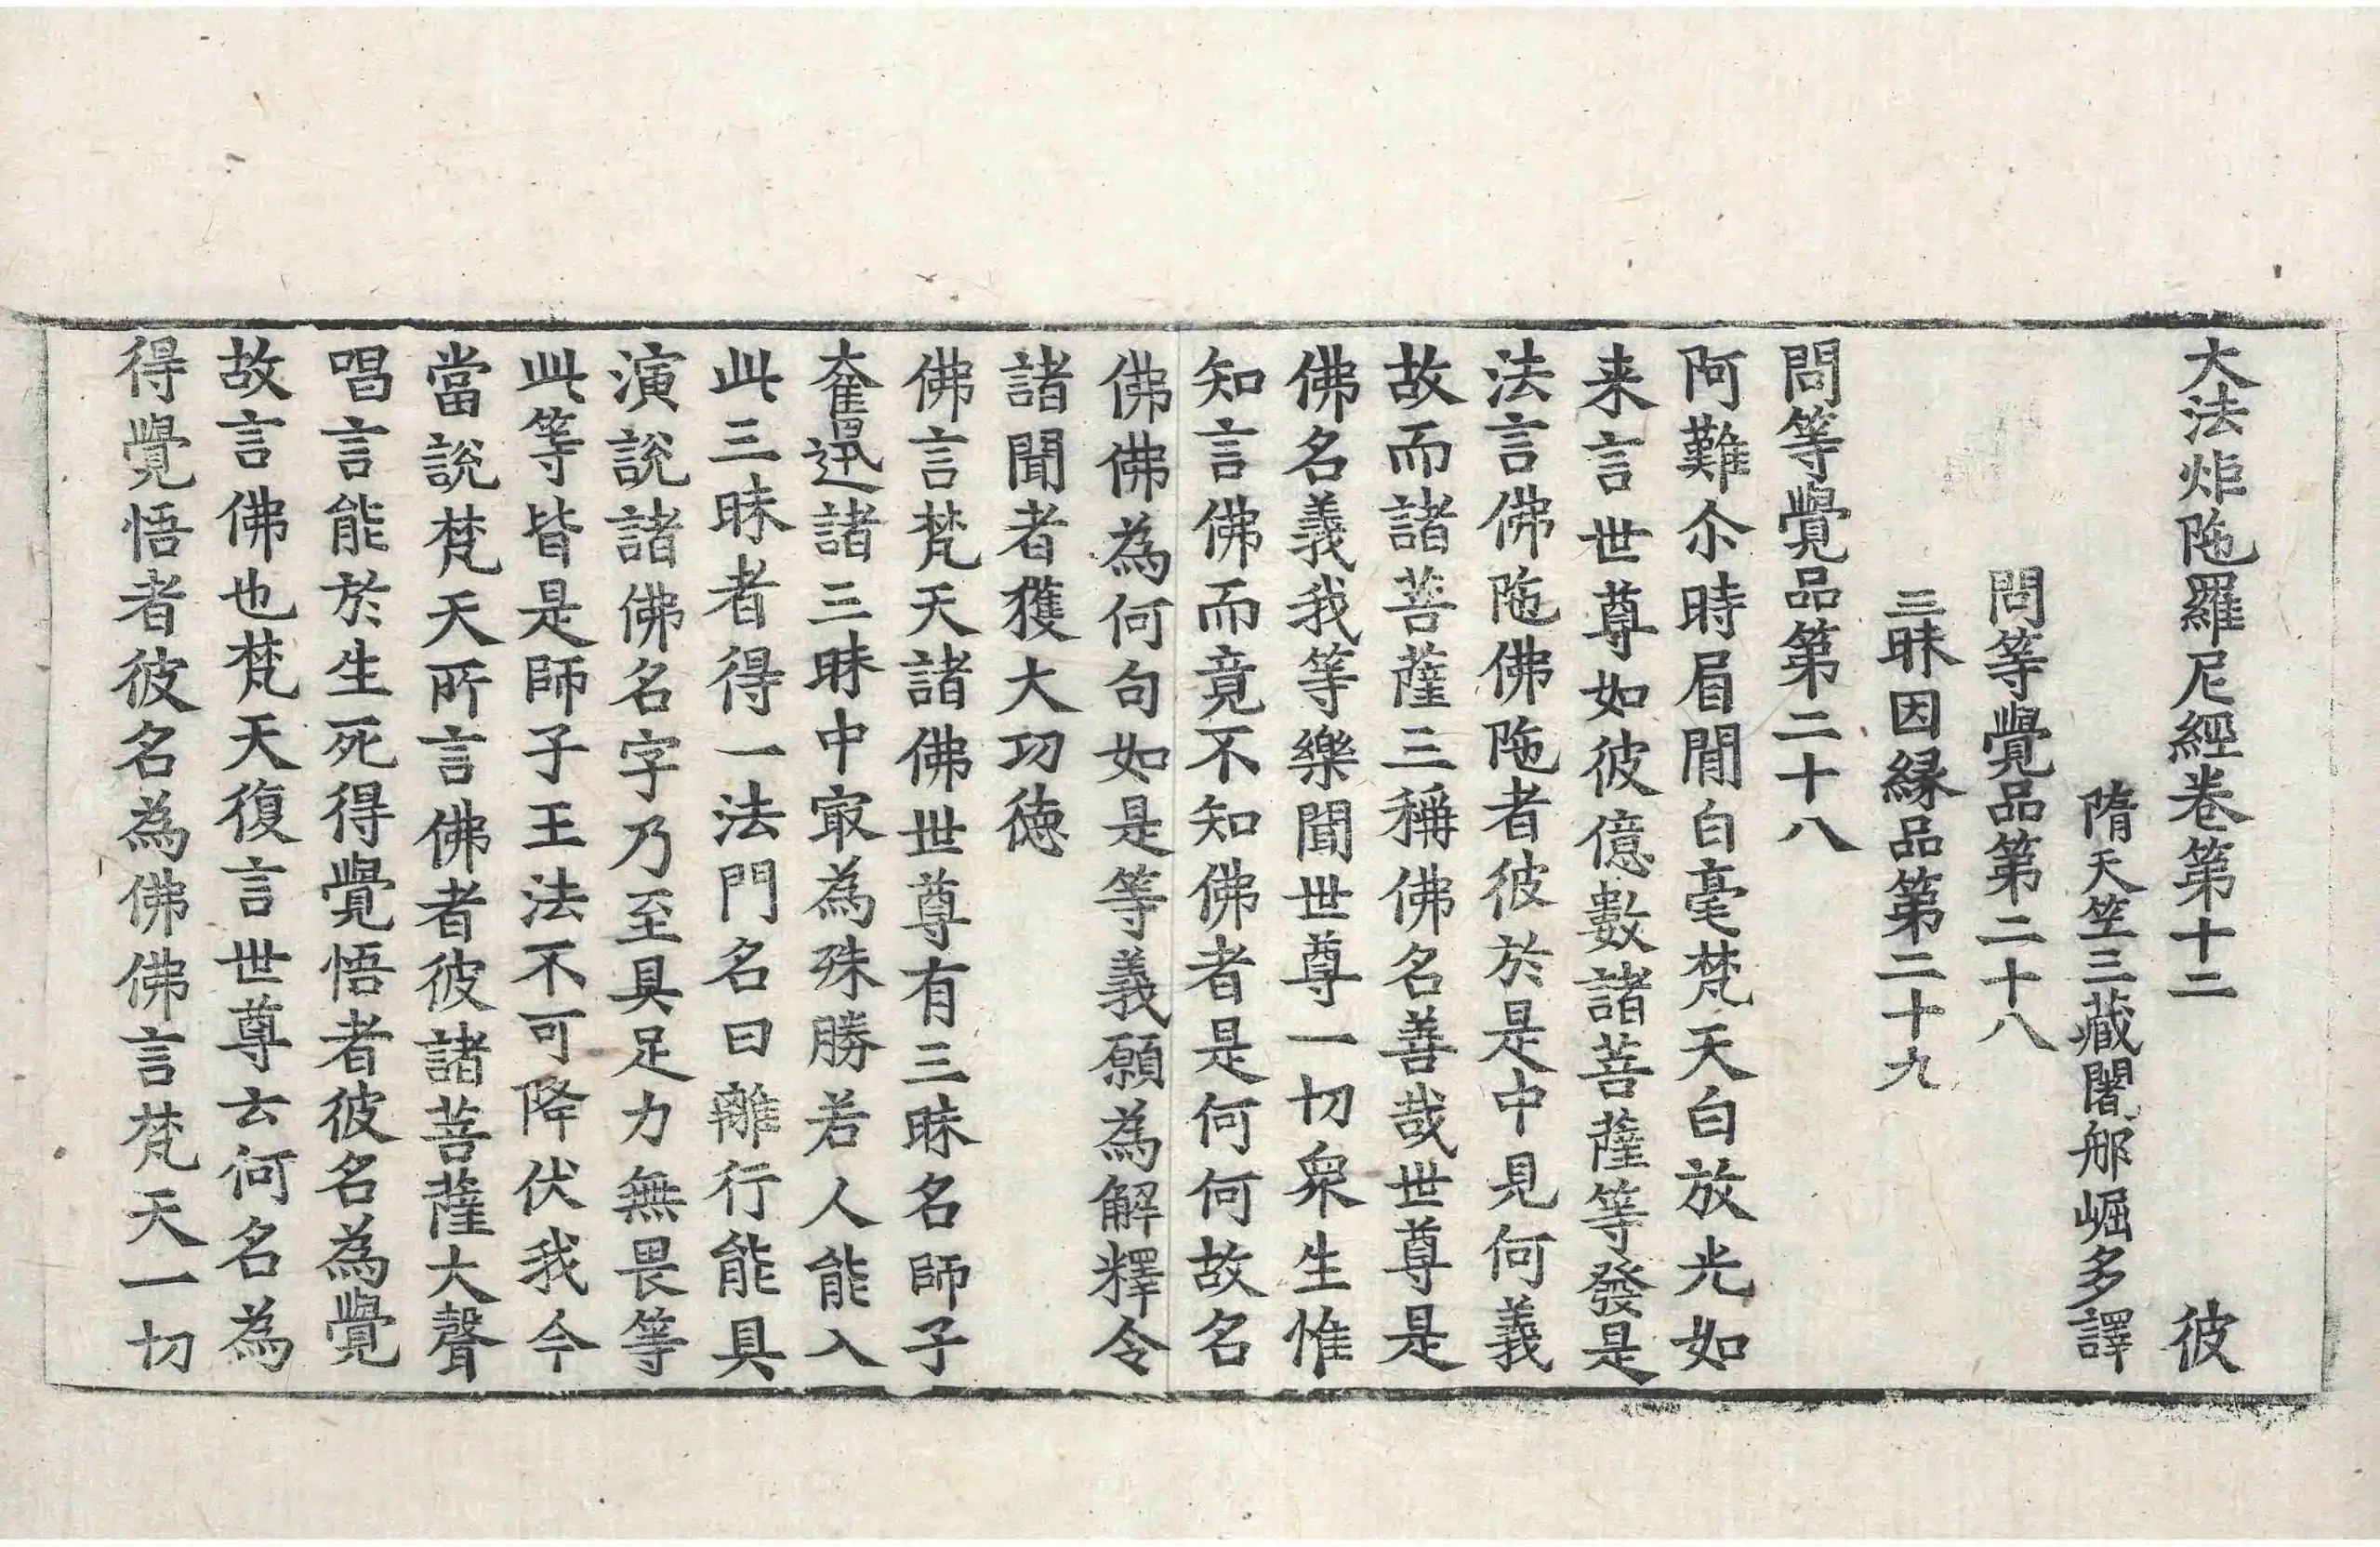 大法炬陁羅尼經卷第十二　彼
隋天竺三藏闍那崛多譯
問等覺品第二十八
三昧因縁品第二十九
問等覺品第二十八
阿難尒時眉閒白毫梵天白放光如
来言世尊如彼億數諸菩薩等發是
法言佛陁佛陁者彼於是中見何義
故而諸菩薩三稱佛名善哉世尊是
佛名義我等樂聞世尊一切衆生惟
知言佛而竟不知佛者是何何故名
佛佛為何句如是等義願為解釋令
諸聞者獲大功徳
佛言梵天諸佛世尊有三昧名師子
奮迅諸三昧中㝡為殊勝若人能入
此三昧者得一法門名曰離行能具
演說諸佛名字乃至具足力無畏等
此等皆是師子王法不可降伏我今
當說梵天所言佛者彼諸菩薩大聲
唱言能於生死得覺悟者彼名為覺
故言佛也梵天復言世尊云何名為
得覺悟者彼名為佛佛言梵天一切